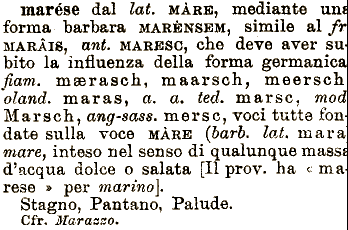 marése dal lat. MÀRE, mediante una
forma barbara MARÈNSEM, simile al fr
MARÂIS, ant. MARESC, che deve aver su-
bito la influenza della forma germanica
fiam. mærasch, maarsch, meersch
oland. maras, a. a. ted. marsc, mod
Marsch, ang-sass. mersc, voci tutte fon-
date sulla voce MÀRE (barb. lat. mara
mare, inteso nel senso di qualunque massa
d'acqua dolce o salata [Il prov. ha « ma-
rese » per marino].
Stagno, Pantano, Palude.
Cfr. Marazzo.